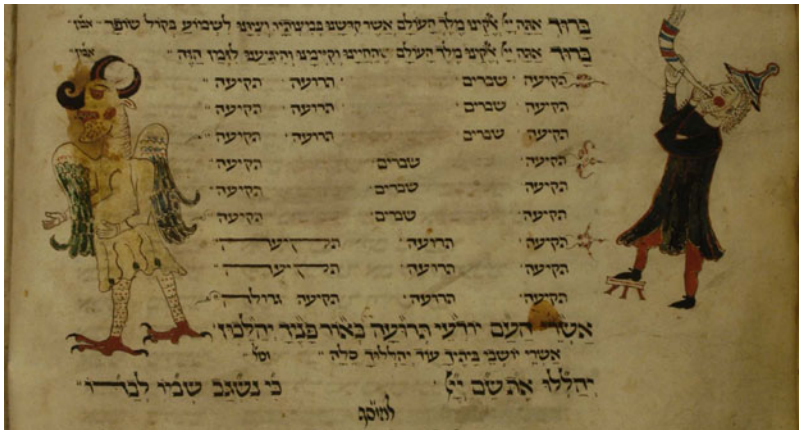 ברוך אתה יי אלקינו מלך העולם אשר קדשנו במצותיו וציונו לשמוע בקול שופר אמן
ברוך אתה יי אלקינו מלך העולם שהחיינו וקיימנו והגיענו לזמן הזה אמן
תקיעה שברים תרועה תקיעה
תקיעה שברים תרועה תקיעה
תקיעה שברים תרועה תקיעה
תקיעה שברים תקיעה
תקיעה שברים תקיעה
תקיעה שברים תקיעה
תקיעה תרועה תקיעה
תקיעה תרועה תקיעה
תקיעה תרועה תקיעה גדולה
אשרי העם יודעי תרועה באור פניך יהלכון
אשרי יושבי ביתך עוד יהללוך סלה וכו'
יהללו את שם יי כי נשגב שמו לבדו